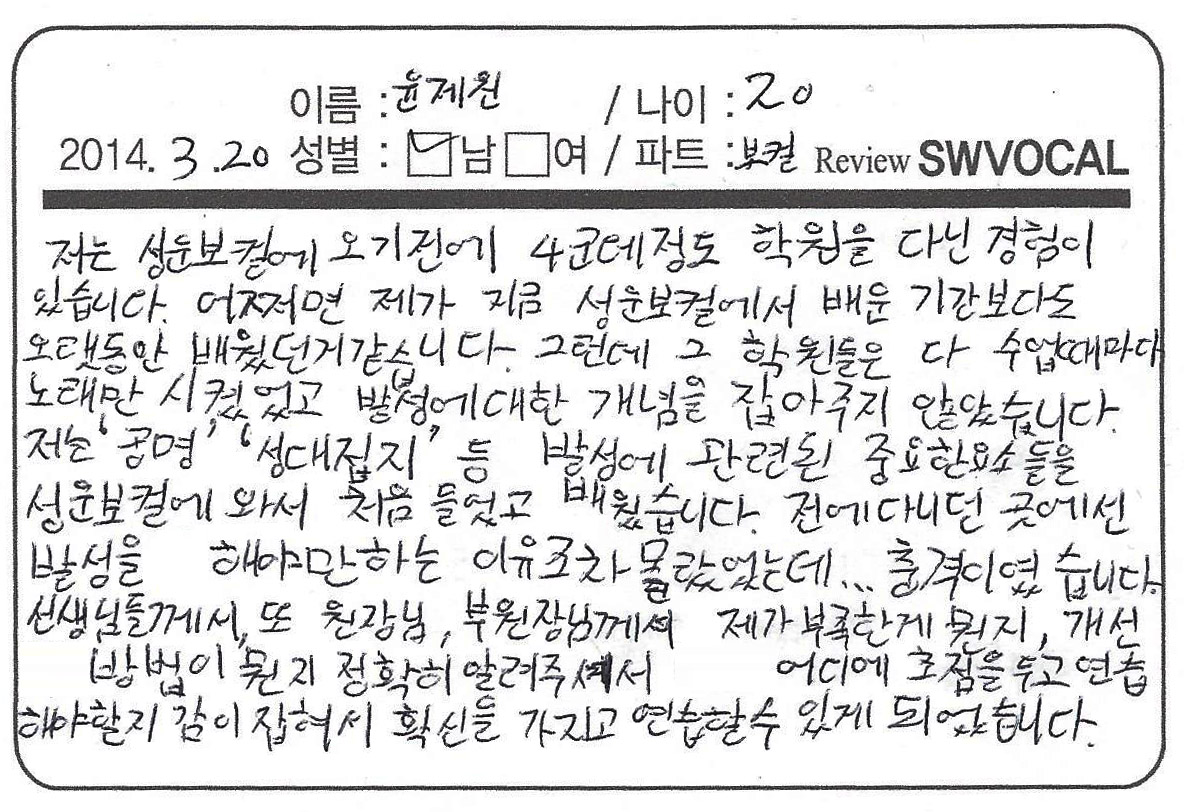 이름 : 윤제원 / 나이 : 20
2014. 3. 20 성별 : ☑남 □여 / 파트 : 보컬 Review SWVOCAL
저는 성운보컬에 오기전에 4군데정도 학원을 다닌 경험이
있습니다. 어쩌면 제가 지금 성운보컬에서 배운 기간보다도
오랫동안 배웠던거같습니다. 그런데 그 학원들은 다 수업때마다
노래만 시켰었고 발성에대한 개념을 잡아주지 않았습니다.
저는 '공명', '성대접지' 등 발성에 관련된 중요한요소들을
성운보컬에 와서 처음 들었고 배웠습니다. 전에다니던 곳에선
발성을 해야만하는 이유조차 몰랐었는데... 충격이였습니다.
선생님들께서, 또 원장님, 부원장님께서 제가부족한게 뭔지, 개선
방법이 뭔지 정확히 알려주셔서 어디에 초점을두고연습
해야할지 감이잡혀서 확신을 가지고 연습할수 있게 되었습니다.